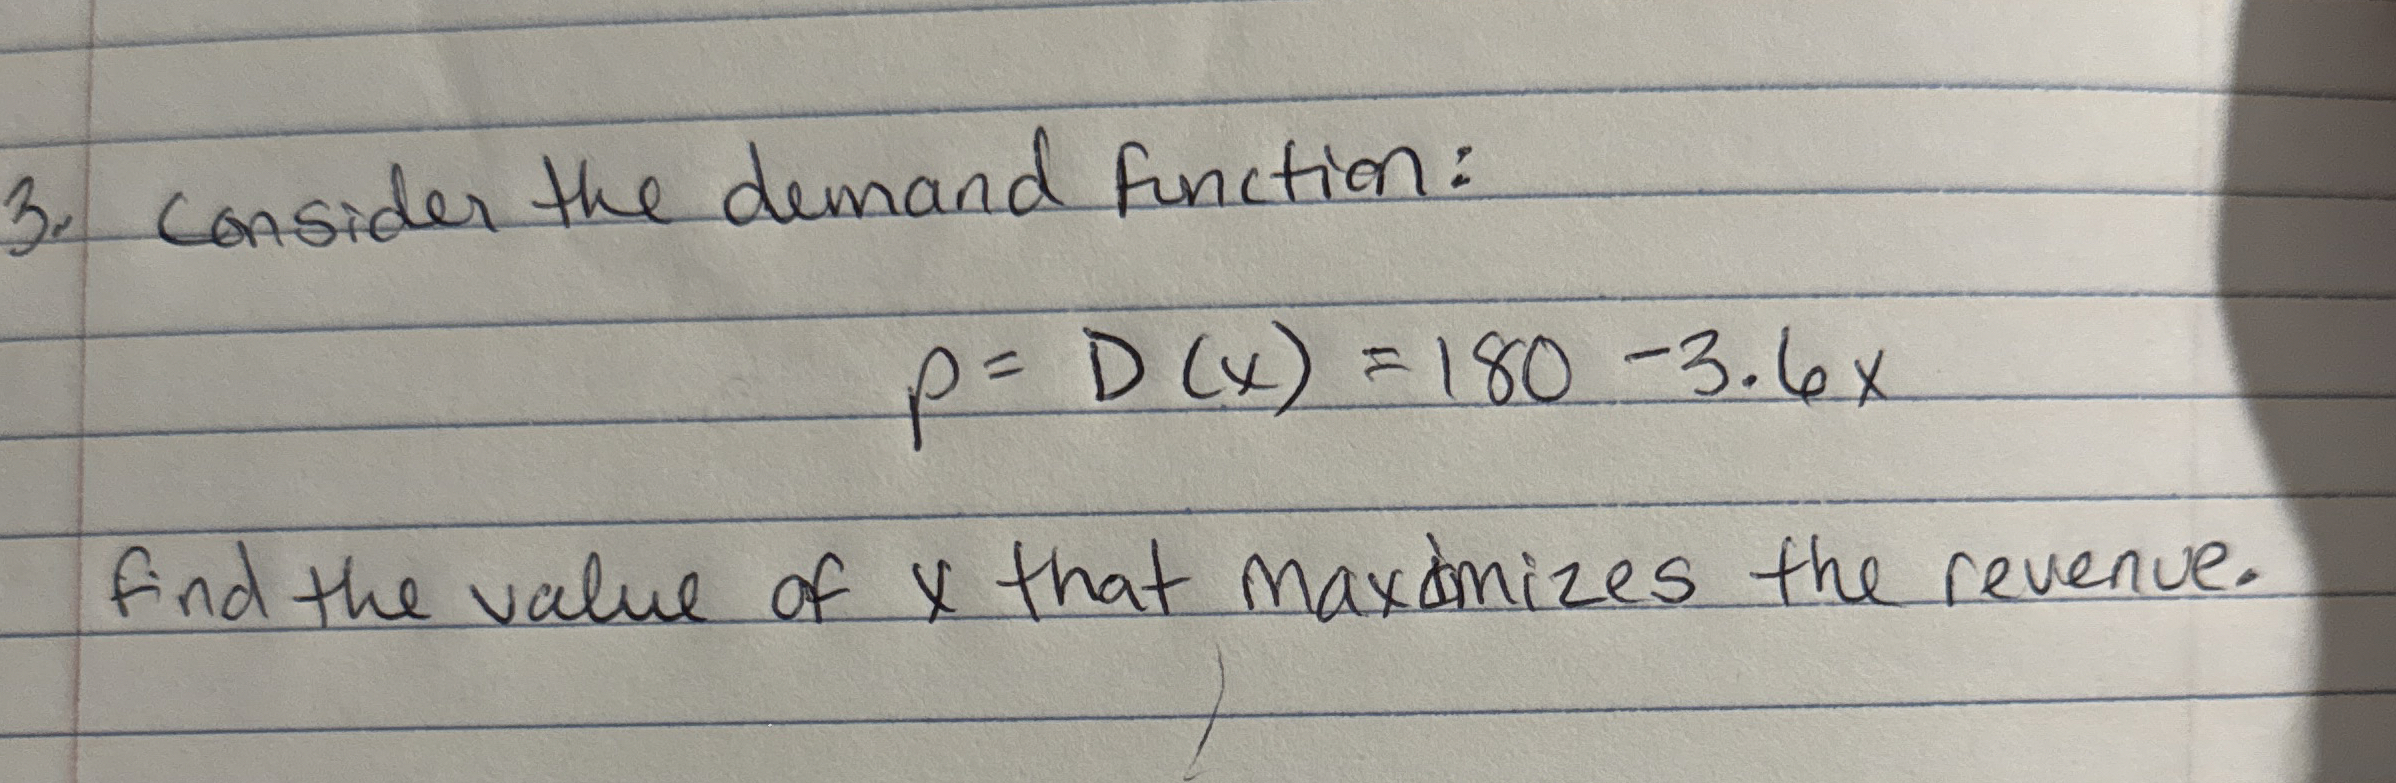 3. Consider the demand function:
p = D(x) = 180 - 3.6x
find the value of x that maximizes the revenue.